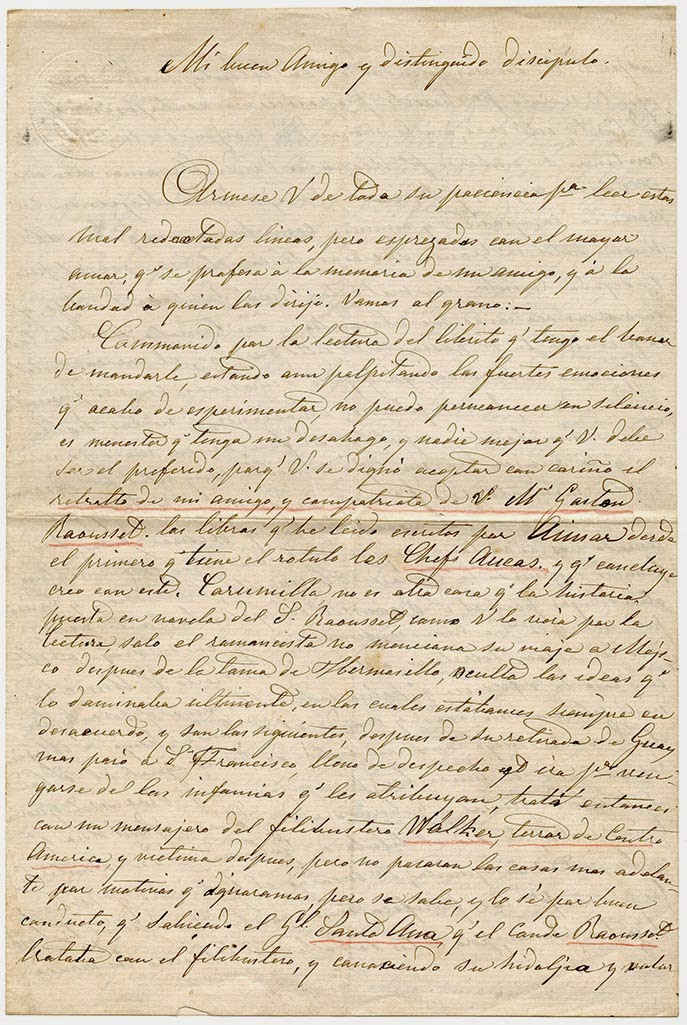 Mi buen Amigo y distinguido discipulo.
Armese V de toda su paciencia pª leer estas
mal redactadas lineas, pero espresadas con el mayor
amor, qº se profesa à la memoria de mi amigo, y à la
bondad à quien las dirijo. Vamos al grano:—
Conmovido por la lectura del librito qº tengo el honor
de mandarle, estando aun palpitando las fuertes emociones
qº acabo de esperimentar, no puedo permanecer en silencio,
es menester qº tenga un desahogo, y nadie mejor qº V. debe
ser el preferido, porqº V. se dignó aceptar con cariño el
retratto de mi amigo, y compatriota de V. Mr Gaston
Raousset. los libros qº he leido escritos por Aimar desde
el primero qº tiene el rotulo les Chefs Aucas. y qº concluye
creo con este. Curumilla no es otra cosa qº la historia
puesta en novela del S. Raousset, como V lo verà por la
lectura, solo el romancista no menciona su viaje a Meji-
co despues de la toma de Hermosillo, oculta las ideas qº
lo dominaba ultimente, en las cuales estàbamos siempre en
desacuerdo, y son las siguientes, despues de su retirada de Guay
mas paró a Sn Francisco, lleno de despecho è ira pª ven-
garse de las infamias qº les atribuyan, tratò entonces
con un mensajero del filibustero Walker, terror de Centro
America, y victima despues, pero no pasaron las cosas mas adelan-
te por motivos qº ignoramos, pero se sabe, y lo sè por buen
conducto, qº sabiendo el Gl Santa Ana qº el Conde Raousset
trataba con el filibustero, y conociendo su hidalgia y valor